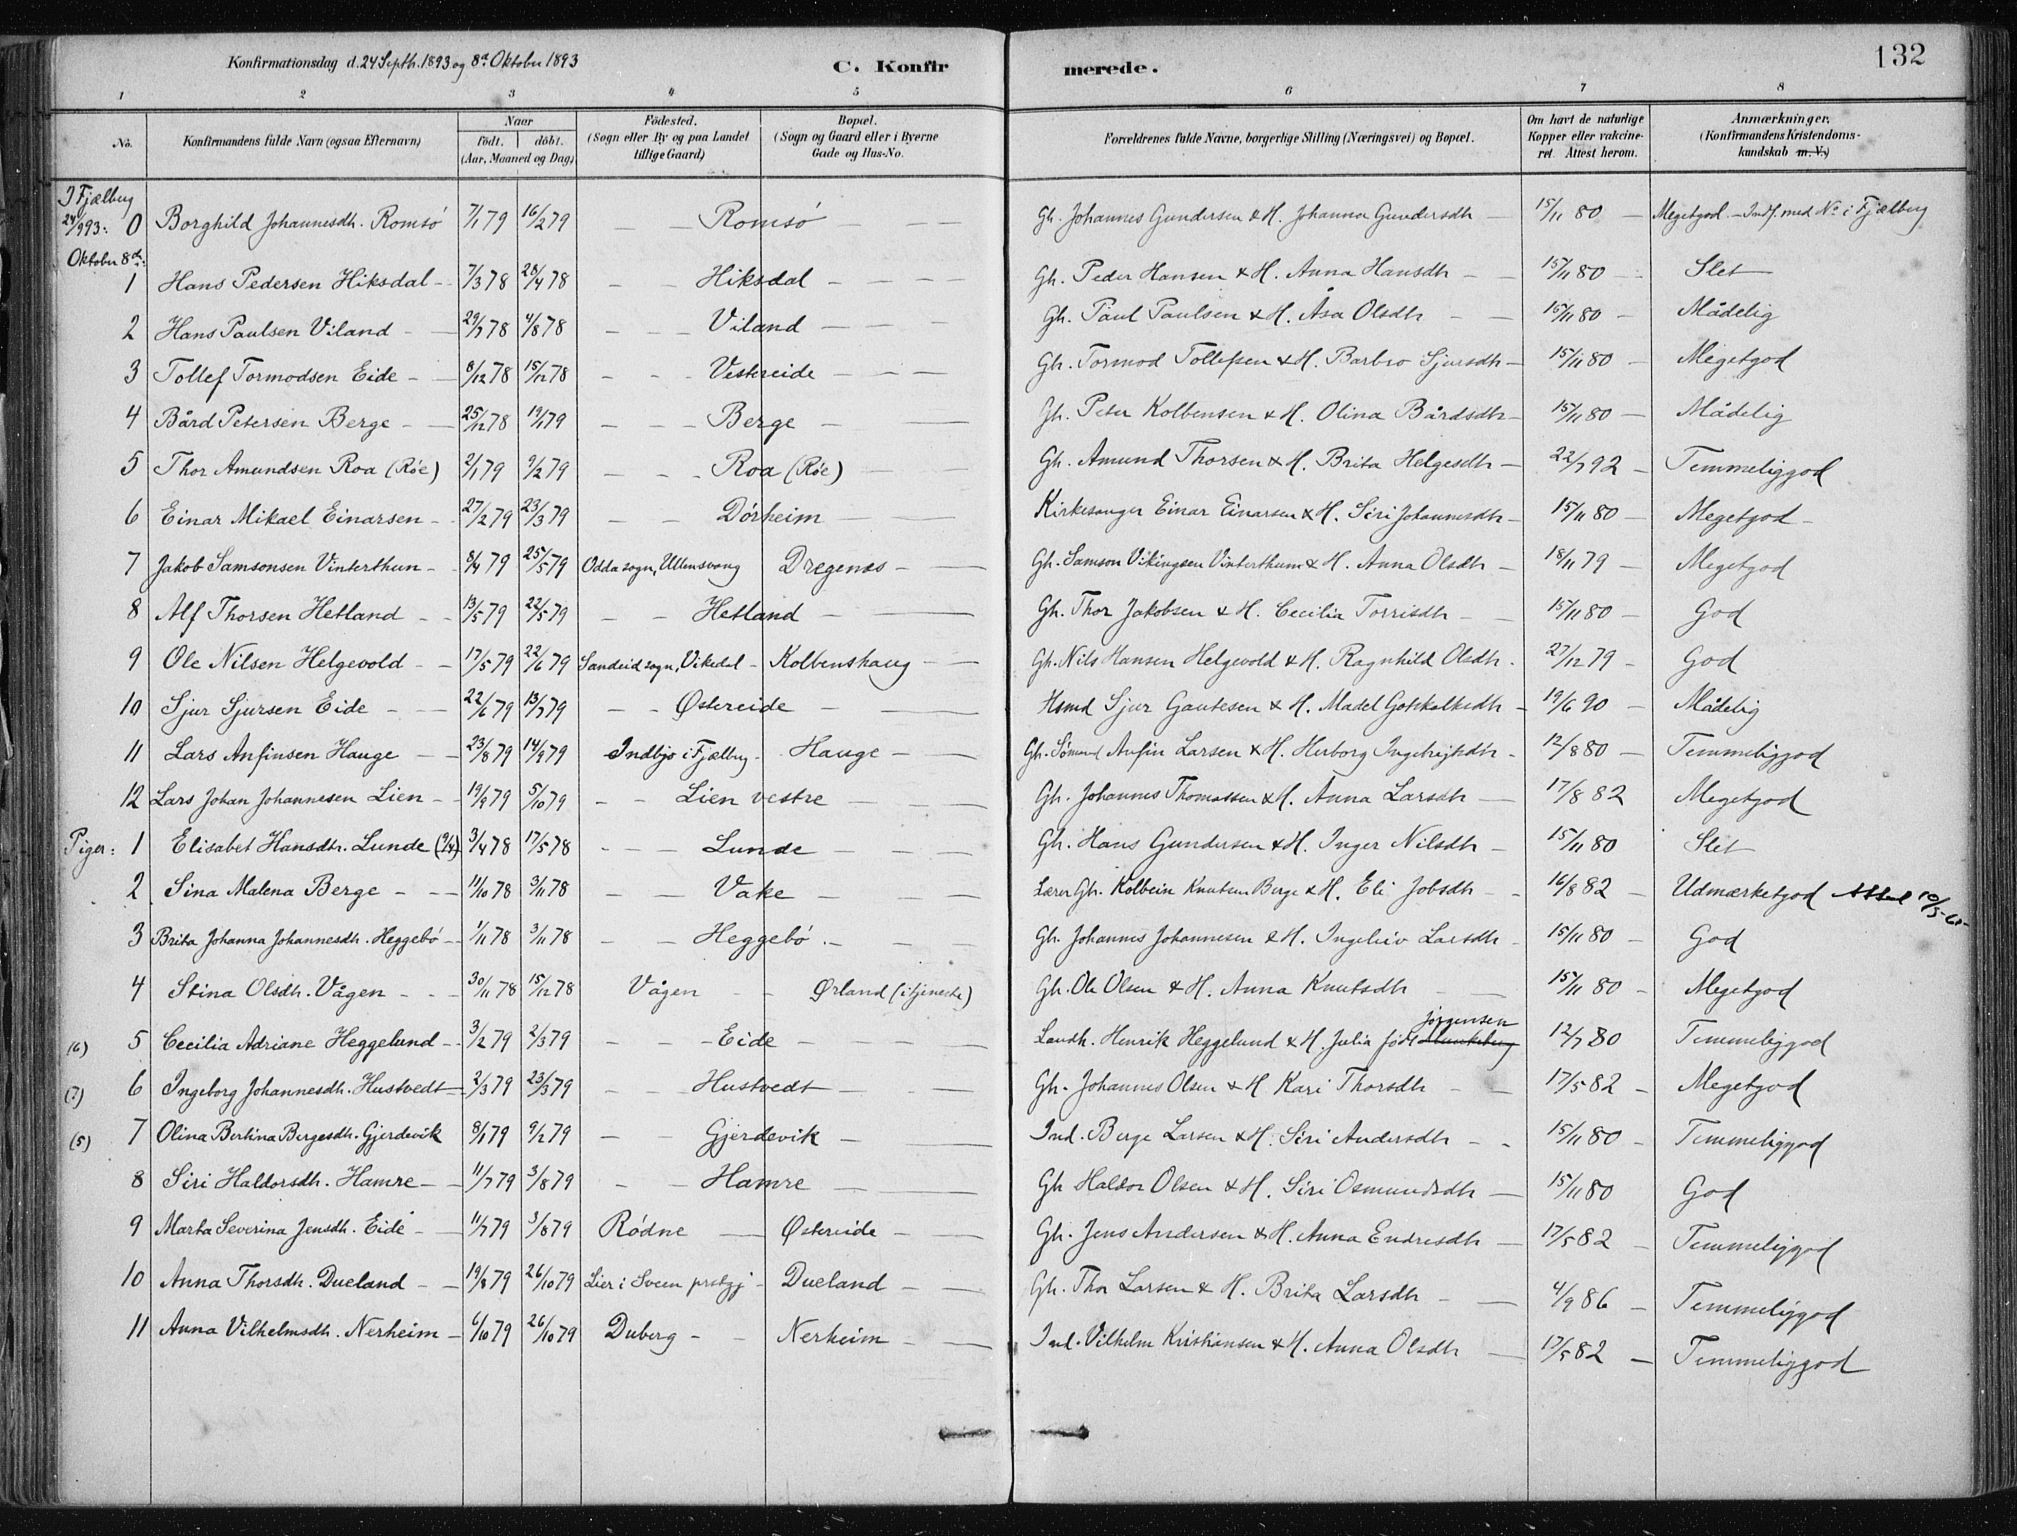 Konfirmationsdag d. 24 Septb. 1893 og 8de Oktober 1893 C. Konfir merede. 132
1 2 3 4 5 6 7 8
No. Konfirmandens fulde Navn (ogsaa Efternavn) Naar födt. döbt. (Aar, Maaned og Dag) Födested. (Sogn eller By og paa Landet tillige Gaard) Bopæl. (Sogn og Gaard eller i Byerne Gade og Hus-No. Forældrenes fulde Navne, borgerlige Stilling (Næringsvei) og Bopæl. Om havt de naturlige Kopper eller vakcineret. Attest herom. Anmærkninger. (Konfirmandens Kristendomskundskab m. V.)
I Fjælberg
24/9 93: 0 Borghild Johannesdh. Romsö 7/1 79 16/2 79 — — Romsö — — Gh. Johannes Gundersen & H. Johanna Gundersdh — 15/11 80 — Megetgod — Indf. med No i Fjælberg
Oktober 8de:
1 Hans Pedersen Hiksdal - 7/3 78 28/4 78 — — Hiksdal — — — Gh. Peder Hansen & H. Anna Hansdh — 15/11 80 — Slet
2 Hans Paulsen Viland — 29/7 78 4/8 78 — — Viland — — — Gh. Paul Paulsen & H. Åsa Olsdh — — 15/11 80 — Mådelig
3 Tollef Tormodsen Eide — 8/12 78 15/12 78 — — Vestereide — — — Gh. Tormod Tollefsen & H. Barbro Sjursdh — 15/11 80 — Megetgod
4 Bård Petersen Berge — 25/12 78 19/1 79 — — Berge — — Gh. Peter Kolbensen & H. Olina Bårdsdh — 15/11 80 — Mådelig
5 Thor Amundsen Roa (Röe) 2/1 79 9/2 79 — — Roa (Röe) — — Gh. Amund Thorsen & H. Brita Helgesdh — 22/7 92 — Temmeliggod
6 Einar Mikael Einarsen — 27/2 79 23/3 79 — — Dörheim — — Kirkesanger Einar Einarsen & H. Siri Johannesdh — 15/11 80 — Megetgod —
7 Jakob Samsonsen Vinterthun — 8/4 79 25/5 79 Odda sogn, Ullensvang Dregenæs — Gh. Samson Vikingsen Vinterthun & H. Anna Olsdh — 18/11 79 — Megetgod
8 Alf Thorsen Hetland — 13/5 79 22/5 79 — — Hetland — — Gh. Thor Jakobsen & H. Cecilia Torrisdh — 15/11 80 — God
9 Ole Nilsen Helgevold — 17/5 79 22/6 79 Sandeid sogn, Vikedal — Kolbenshaug — Gh. Nils Hansen Helgevold & H. Ragnhild Olsdh. 27/12 79 — God
10 Sjur Sjursen Eide — 22/6 79 13/7 79 — — Østereide — — Hsmd Sjur Gautesen & H. Madel Gotskalksdh — 19/6 90 — Mådelig
11 Lars Anfinsen Hauge — 23/8 79 14/9 79 Indbjo i Fjælberg — Hauge — Gh. Sömand Anfin Larsen & H. Herborg — 12/8 80 — Temmeliggod
12 Lars Johan Johannesen Lien — 19/9 79 5/10 79 — — Lien vestre — — Gh. Johannes Thomassen & H. Anna Larsdh — 17/8 82 Megetgod
Piger: 1 Elisabet Hansdtr. Lunde (9/4) 3/4 78 17/5 78 — — Lunde — — Gh. Hans Gundersen & H. Inger Nilsdh — 15/11 80 Slet
2 Sina Malena Berge — 11/10 78 3/11 78 — — Vake — — Lærer Gh. Kolbein Knutsen Berge & H. Eli Jobsdh — 16/8 82 — Udmærketgod Attest 10/5-60-
3 Brita Johanna Johannesdh. Heggebö — 1/11 78 3/11 78 — — Heggebö — — Gh. Johannes Johannesen & H. Ingeleiv Larsdh — 15/11 80 — God
4 Stina Olsdh. Vågen — 30/11 78 15/12 78 Vågen — — Ørland (i tjeneste) Gh. Ole Olsen & H. Anna Knutsdh — 15/11 80 — Megetgod
Jörgensen
(6) 5 Cecilia Adriane Heggelund — 3/2 79 2/3 79 — — Eide — — Landh. Henrik Heggelund & H. Julia född 12/7 80 Temmeliggod
(7) 6 Ingeborg Johannesdh. Hustvedt — 2/3 79 23/3 79 — — Hustvedt — — Gh. Johannes Olsen & H. Kari Thorsdh — 17/5 82 — Megetgod
(5) 7 Olina Bertina Bergesdh. Gjerdevik 8/1 79 9/2 79 — — Gjerdevik — — Ind. Berge Larsen & H. Siri Andersdh — 15/11 80 — Temmeliggod
8 Siri Haldorsdh. Hamre — 11/7 79 3/8 79 — — Hamre — — Gh Haldor Olsen & H. Siri Osmundsdh — 15/11 80 God
9 Marta Severina Jensdh. Eide — 11/7 79 3/8 79 Rödne — Østereide — Gh. Jens Andersen & H. Anna Endresdh — 17/5 82 — Temmeliggod
10 Anna Thorsdh. Dueland — 19/8 79 26/10 79 Lier i Sveen prstgj — Dueland — Gh. Thor Larsen & H. Brita Larsdh — 4/9 86 — Temmeliggod
11 Anna Vilhelmsdh. Nerheim — 6/10 79 26/10 79 Duberg — — Nerheim — Ind. Vilhelm Kristiansen & H. Anna Olsdh — 17/5 82 — Temmeliggod